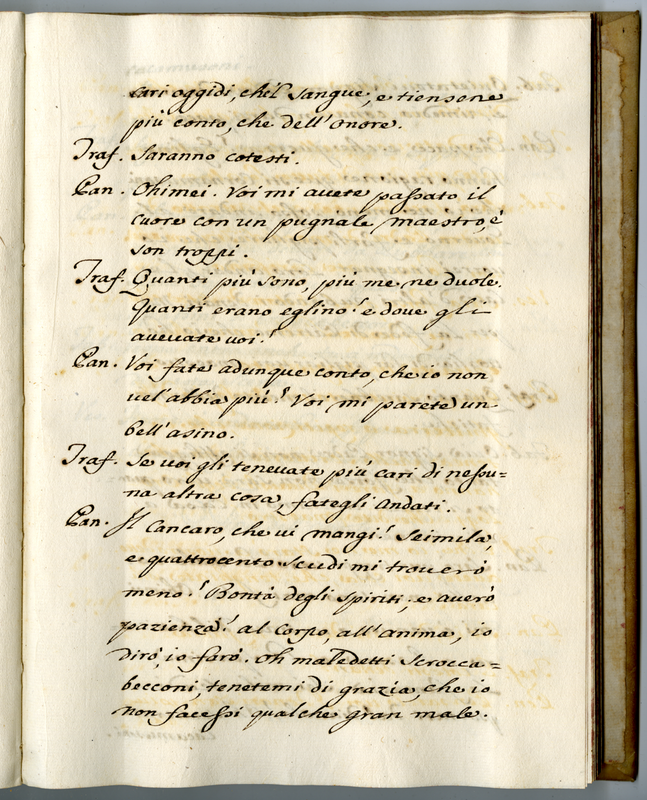 cari oggidì, che'l sangue, e tiensene
più conto, che dell'onore.
Traf. Saranno cotesti.
Pan. Ohimei. Voi mi avete passato il
cuore con un pugnale maestro, e
son troppi.
Traf. Quanti più sono, più me ne duole.
Quanti erano eglino? e dove gli
avevate voi?
Pan. Voi fate adunque conto, che io non
vel'abbia più? Voi mi parete un
bell'asino.
Traf. Se voi gli tenevate più cari di nessu=
na altra cosa, fategli andati.
Pan. Il Cancaro, che vi mangi! Seimila,
e quattrocento scudi mi troverò
meno? Bontà degli spiriti, e averò
pazienza? al Corpo, all'anima, io
dirò, io farò. oh maledetti scrocca=
becconi, tenetemi di grazia, che io
non facessi qualche gran male.